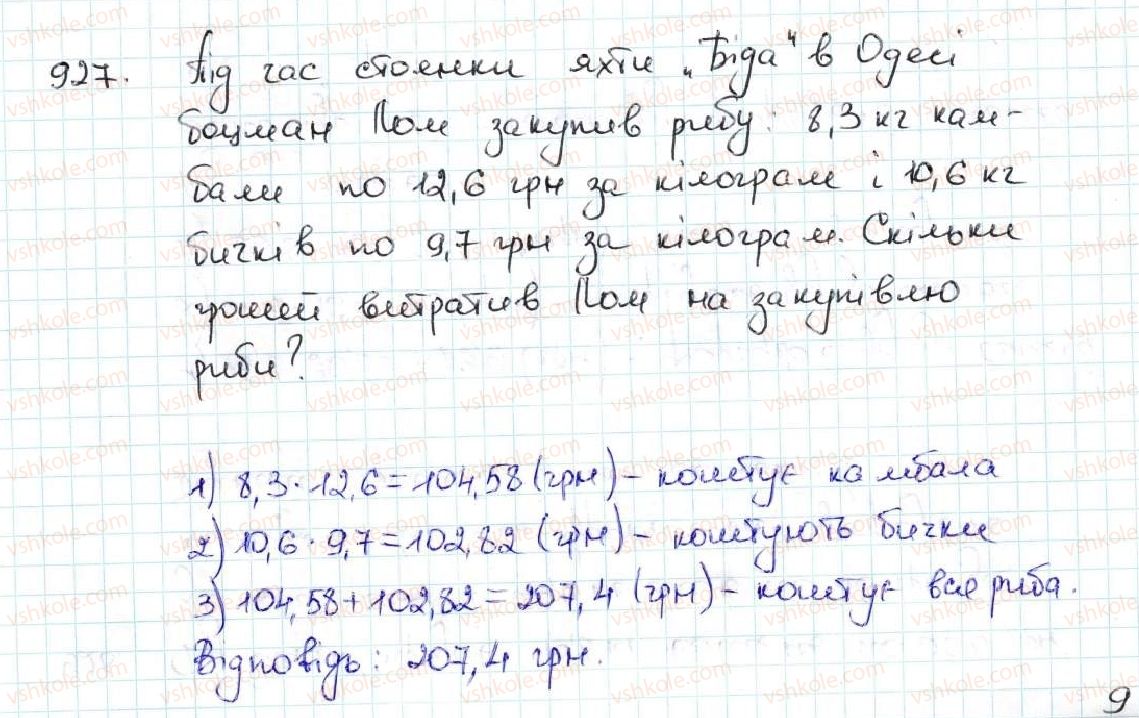 927. Під час стоянки яхти „Біда" в Одесі
боцман Лом закупив рибу: 8,3 кг кам-
бали по 12,6 грн за кілограм і 10,6 кг
бичків по 9,7 грн за кілограм. Скільки
грошей витратив Лом на закупівлю
риби?
1) 8,3·12,6=104,58 (грн) - коштує камбала
2) 10,6·9,7=102,82 (грн) - коштують бички
3) 104,58+102,82=207,4 (грн) - коштує вся риба.
Відповідь: 207,4 грн.
9
vshkole.com